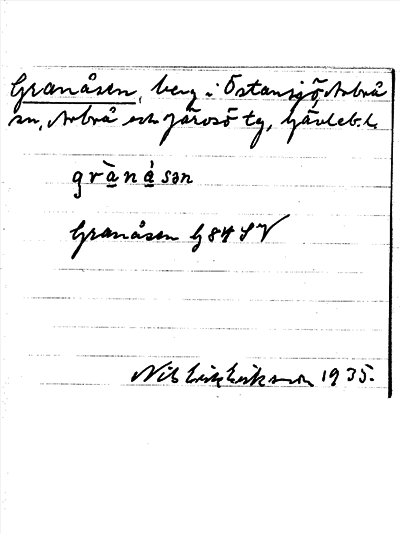 Granåsen, berg i Östansjö, Arbrå
sn, Arbrå och Järvsö tg, Gävleb. l.
grànásən
Granåsen G 84 SV
Nils Erik Eriksson 1935.